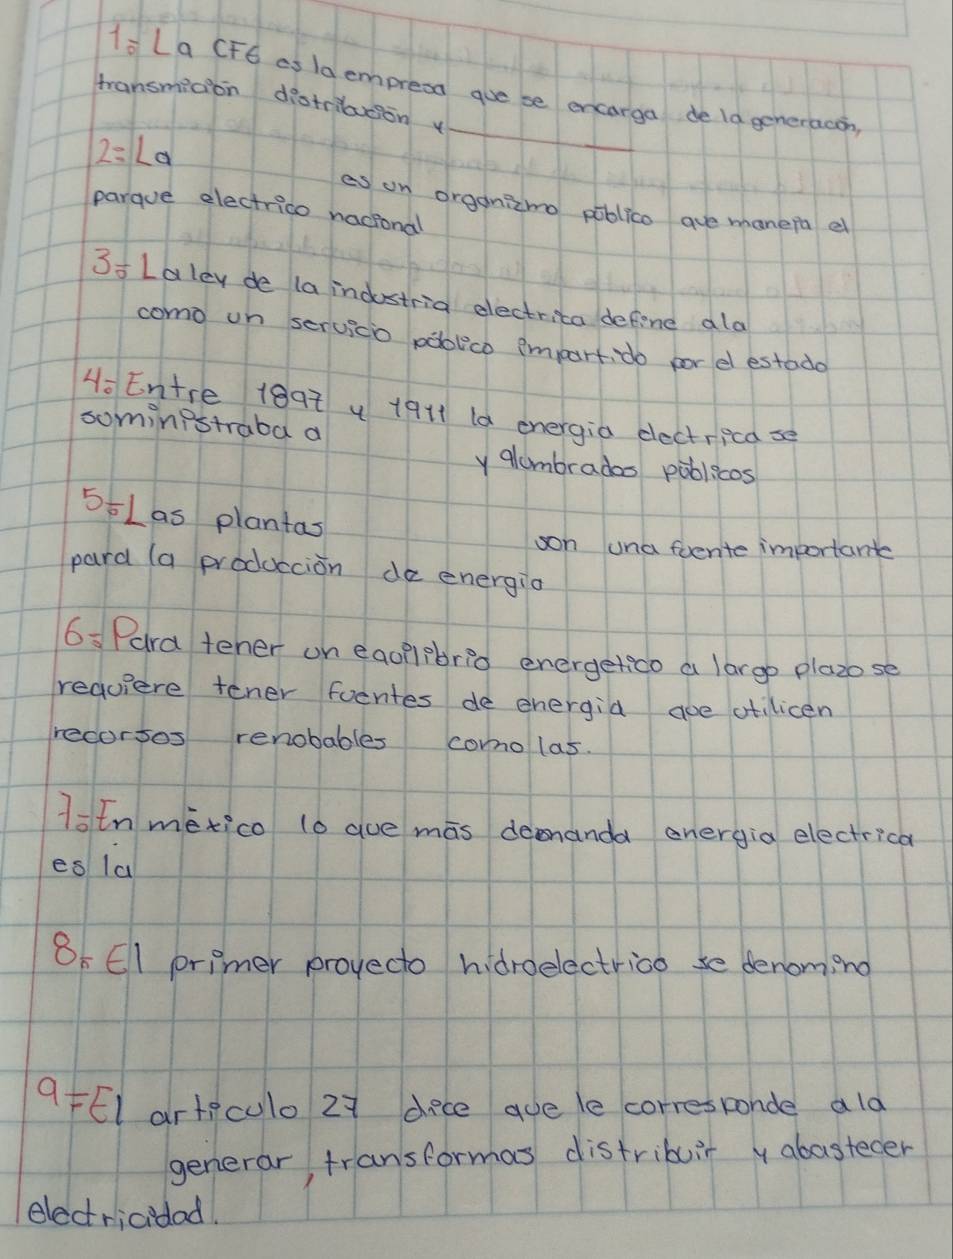 1= La CFE es la empresa que se encarga de la generacón,
transmición distribución y
2= La es un organizmo público que maneja el
parque electrico nacional
3= La ley de la industria electrica define ala
como un servicio público impartido por el estado
4= Entre 1897 y 1911 la energia electrica se
suministraba a
y alumbrados públicos
5= Las plantas son una fuente importante
para la producción de energia
6= Para tener un equilibrio energetico a largo plazo se
requiere tener fuentes de energia que utilicen
recursos renobables como las.
7= En méxico lo que más demanda energia electrica
es la
8= El primer proyecto hidroelectrico se denomino
9= El articulo 27 dice que le corresponde ala
generar, transformas distribuir y abastecer
electricidad.